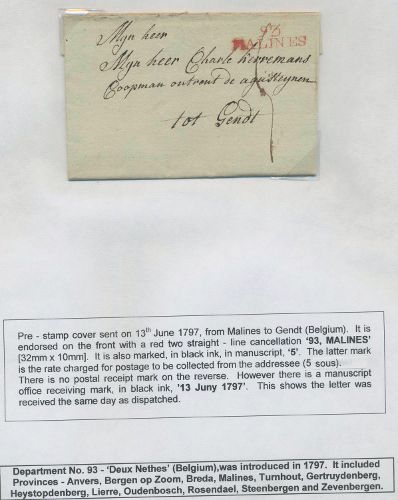 Mijn heer
93
MALINES
Mijn heer Charle Herremans
Coopman ontrent de
tot Gendt
5
Pre - stamp cover sent on 13th June 1797, from Malines to Gendt (Belgium). It is
endorsed on the front with a red two straight - line cancellation ‘93, MALINES’
[32mm x 10mm]. It is also marked, in black ink, in manuscript, ‘5’. The latter mark
is the rate charged for postage to be collected from the addressee (5 sous).
There is no postal receipt mark on the reverse. However there is a manuscript
office receiving mark, in black ink, ’13 Juny 1797’. This shows the letter was
received the same day as dispatched.
Department No. 93 - ‘Deux Nethes’ (Belgium),was introduced in 1797. It included
Provinces - Anvers, Bergen op Zoom, Breda, Malines, Turnhout, Gertruydenberg,
Heystopdenberg, Lierre, Oudenbosch, Rosendael, Steenbergen and Zevenbergen.